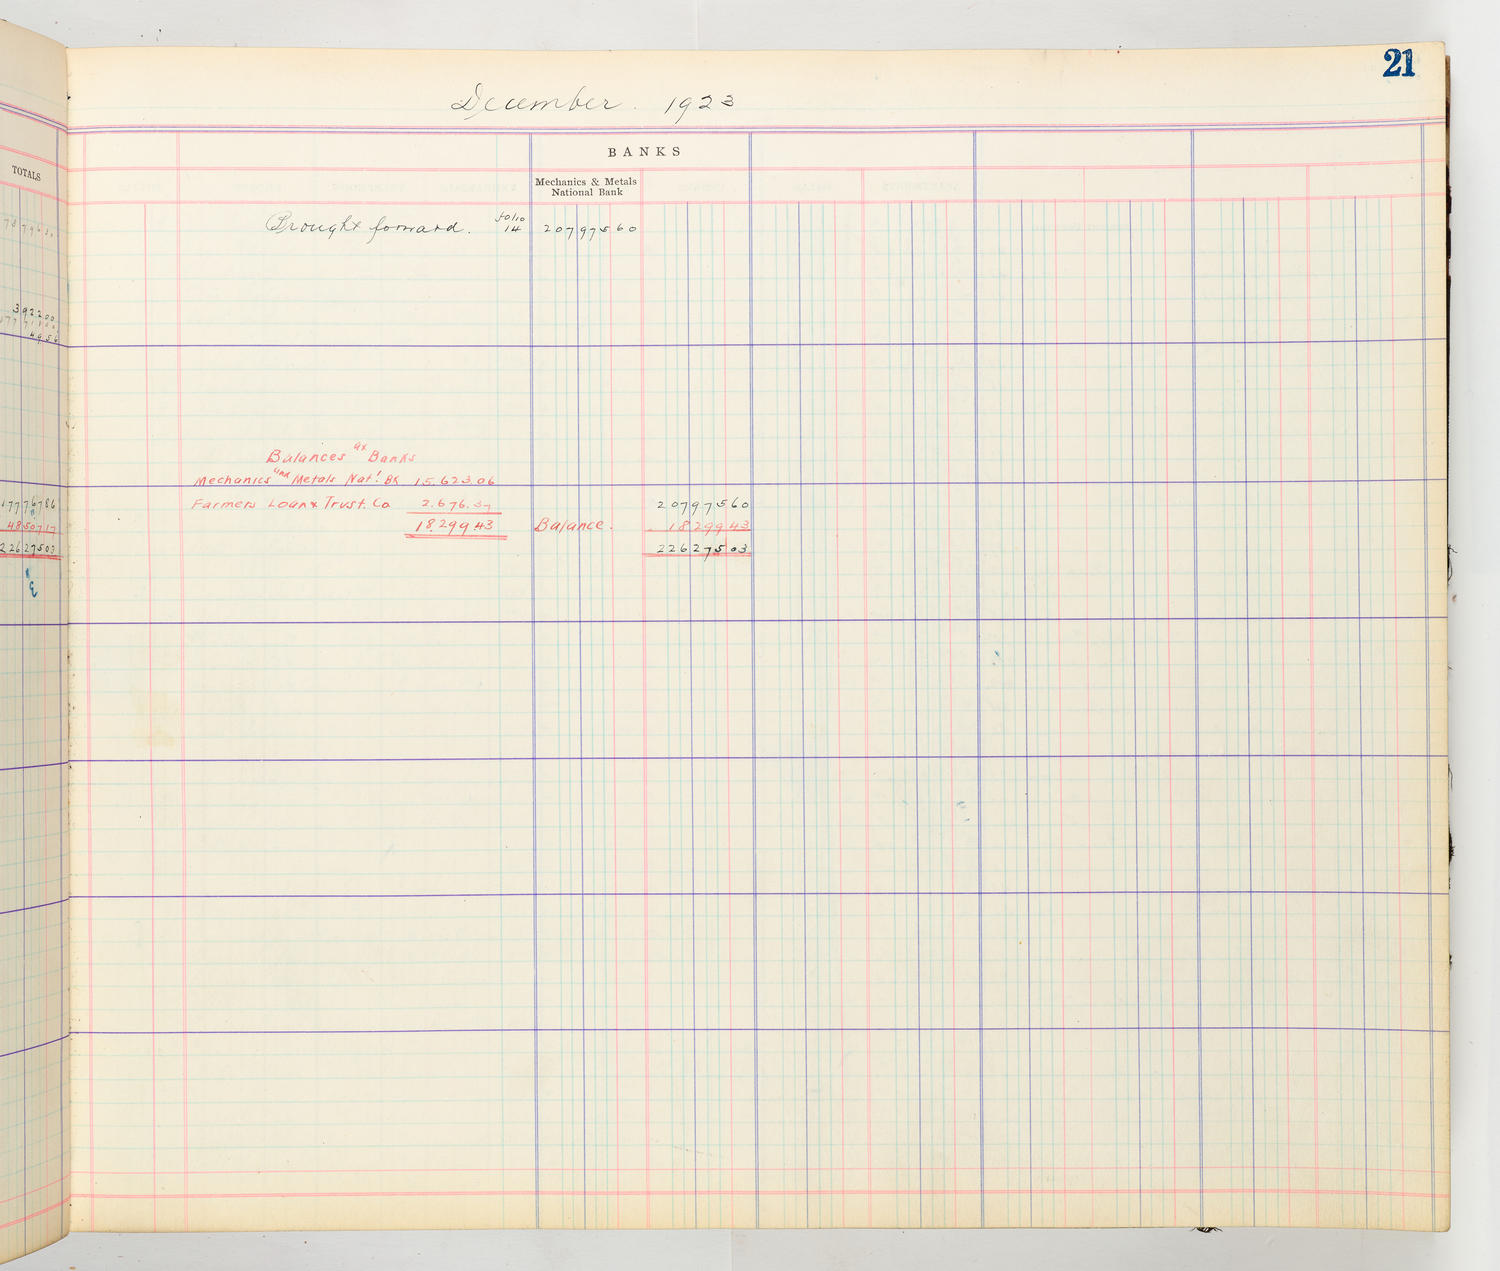 21
December. 1923
TOTALS
BANKS
Mechanics & Metals
National Bank
Brought forward. folio 14 207975 60
3922 00
49 56
Balances at Banks
Mechanics and Metals Nat'l. Bk 15,623.06
Farmers Loan & Trust. Co 2.676.37
18299 43
Balance.
207975 60
18299 43
226275 03
177767 86
48507 17
226275 03